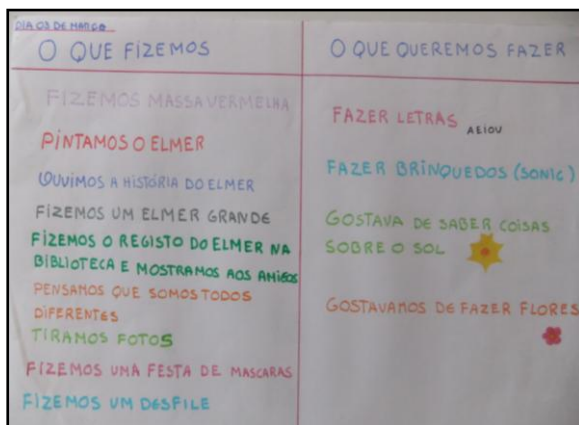 DIA 03 DE MARÇO
O QUE FIZEMOS
FIZEMOS MASSA VERMELHA
PINTAMOS O ELMER
OUVIMOS A HISTÓRIA DO ELMER
FIZEMOS UM ELMER GRANDE
FIZEMOS O REGISTO DO ELMER NA
BIBLIOTECA E MOSTRAMOS AOS AMIGOS
PENSAMOS QUE SOMOS TODOS
DIFERENTES
TIRAMOS FOTOS
FIZEMOS UMA FESTA DE MASCARAS
FIZEMOS UM DESFILE
O QUE QUEREMOS FAZER
FAZER LETRAS AEIOU
FAZER BRINQUEDOS (SONIC)
GOSTAVA DE SABER COISAS
SOBRE O SOL
GOSTAVAMOS DE FAZER FLORES